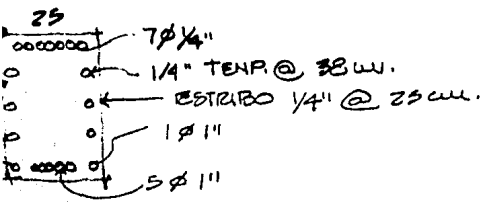 25
7Ø 1/4"
1/4" TEMP. @ 38 cm.
ESTRIBO 1/4" @ 25 cm.
1 Ø 1"
5 Ø 1"